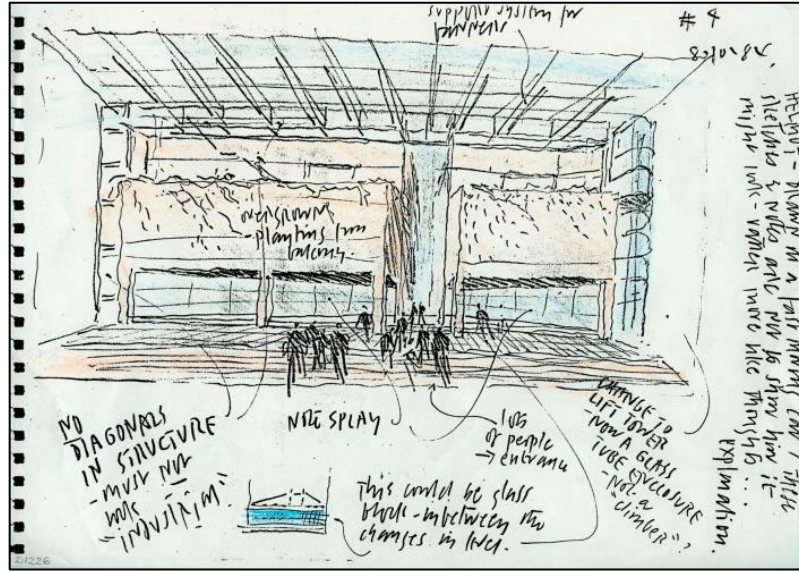 support system for
banners
# 4
28/01/82.
HELMUT - DRAWN IN A fast moving car! These
sketches & notes are not to show how it
might look rather more like thoughts ...
explanation.
overgrown
planting from
balcony.
NO
DIAGONALS
IN STRUCTURE
- MUST NOT
look
- "INDUSTRIAL"
NOTE SPLAY
lots
of people
→ entrance
CHANGE TO
LIFT TOWER
NOW A GLASS
TUBE ENCLOSURE
- NOT a
"climber"?
This could be glass
block - inbetween the
changes in level.
D1226